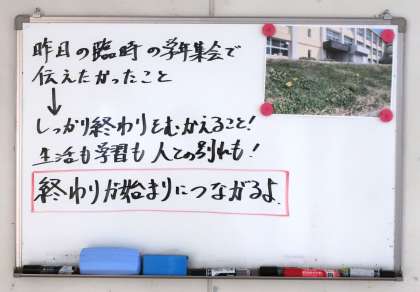 昨日の臨時の学年集会で
伝えたかったこと
↓
しっかり終わりをむかえること!
生活も学習も人との別れも!
終わりが始まりにつながるよ